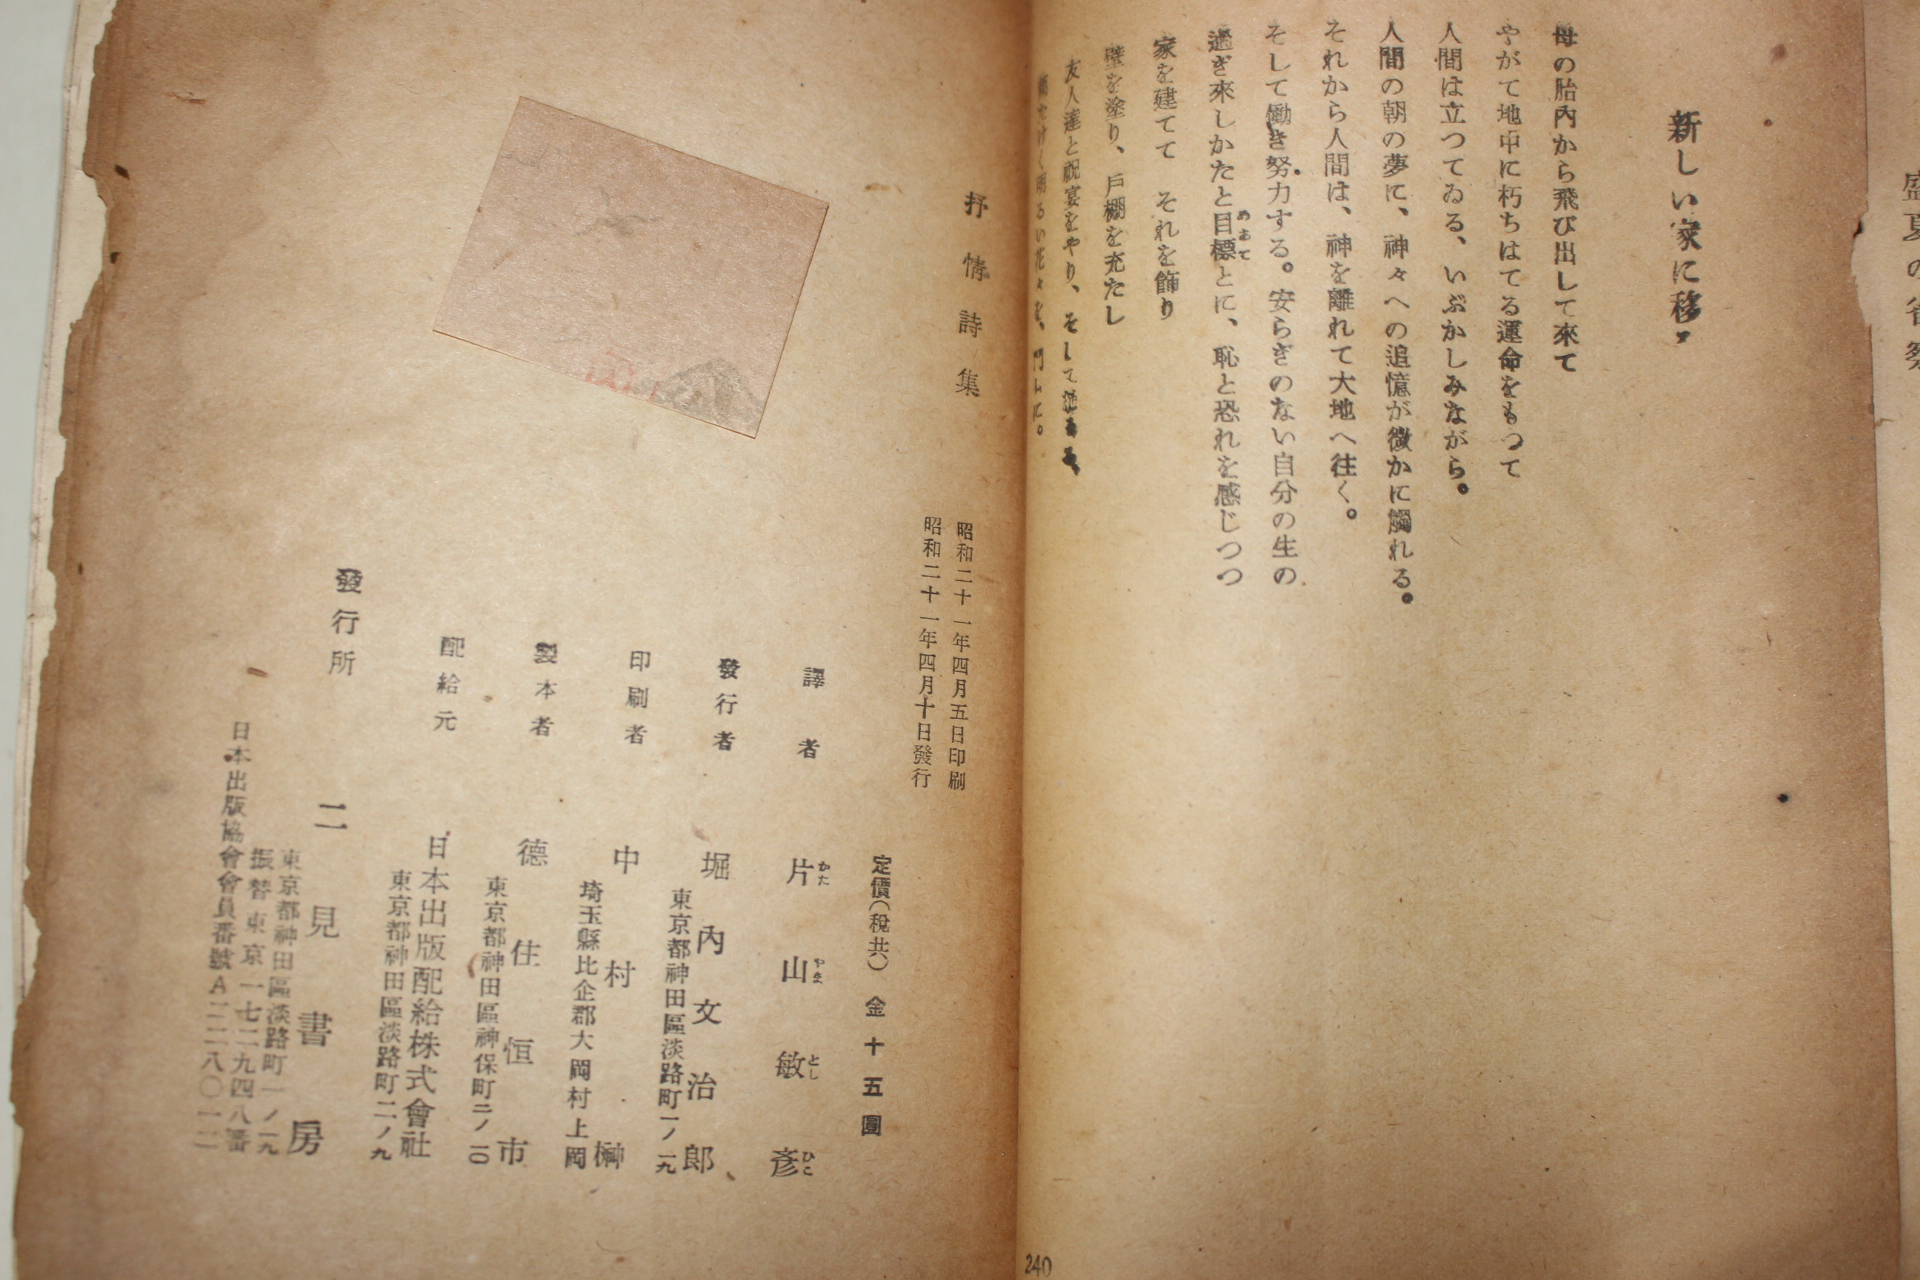 新しい家に移つ
母の胎内から飛び出して來て
やがて地中に朽ちはてる運命をもつて
人間は立つてゐる、いぶかしみながら。
人間の朝の夢に、神々への追憶が微かに觸れる。
それから人間は、神を離れて大地へ往く。
そして働き努力する。安らぎのない自分の生の
過ぎ來しかたと目標とに、恥と恐れを感じつつ
めあて
家を建てて それを飾り
壁を塗り、戸棚を充たし
友人達と祝宴をやり、そして
明るい花々を、門口に。
240
抒情詩集
昭和二十一年四月五日印刷
昭和二十一年四月十日發行
定價(稅共) 金十五圓
譯者 片山敏彥
かた やま とし ひこ
發行者 堀內文治郎
東京都神田區淡路町一ノ一九
印刷者 中村榊
埼玉縣比企郡大岡村上岡
製本者 德住恒市
東京都神田區神保町二ノ一〇
配給元 日本出版配給株式會社
東京都神田區淡路町二ノ九
發行所 二見書房
東京都神田區淡路町一ノ一九
振替東京一七二九四八番
日本出版協會會員番號A一二八〇一二